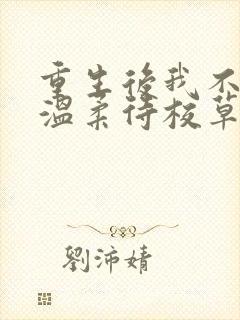 重生後我不
溫柔待校草
劉沛婧